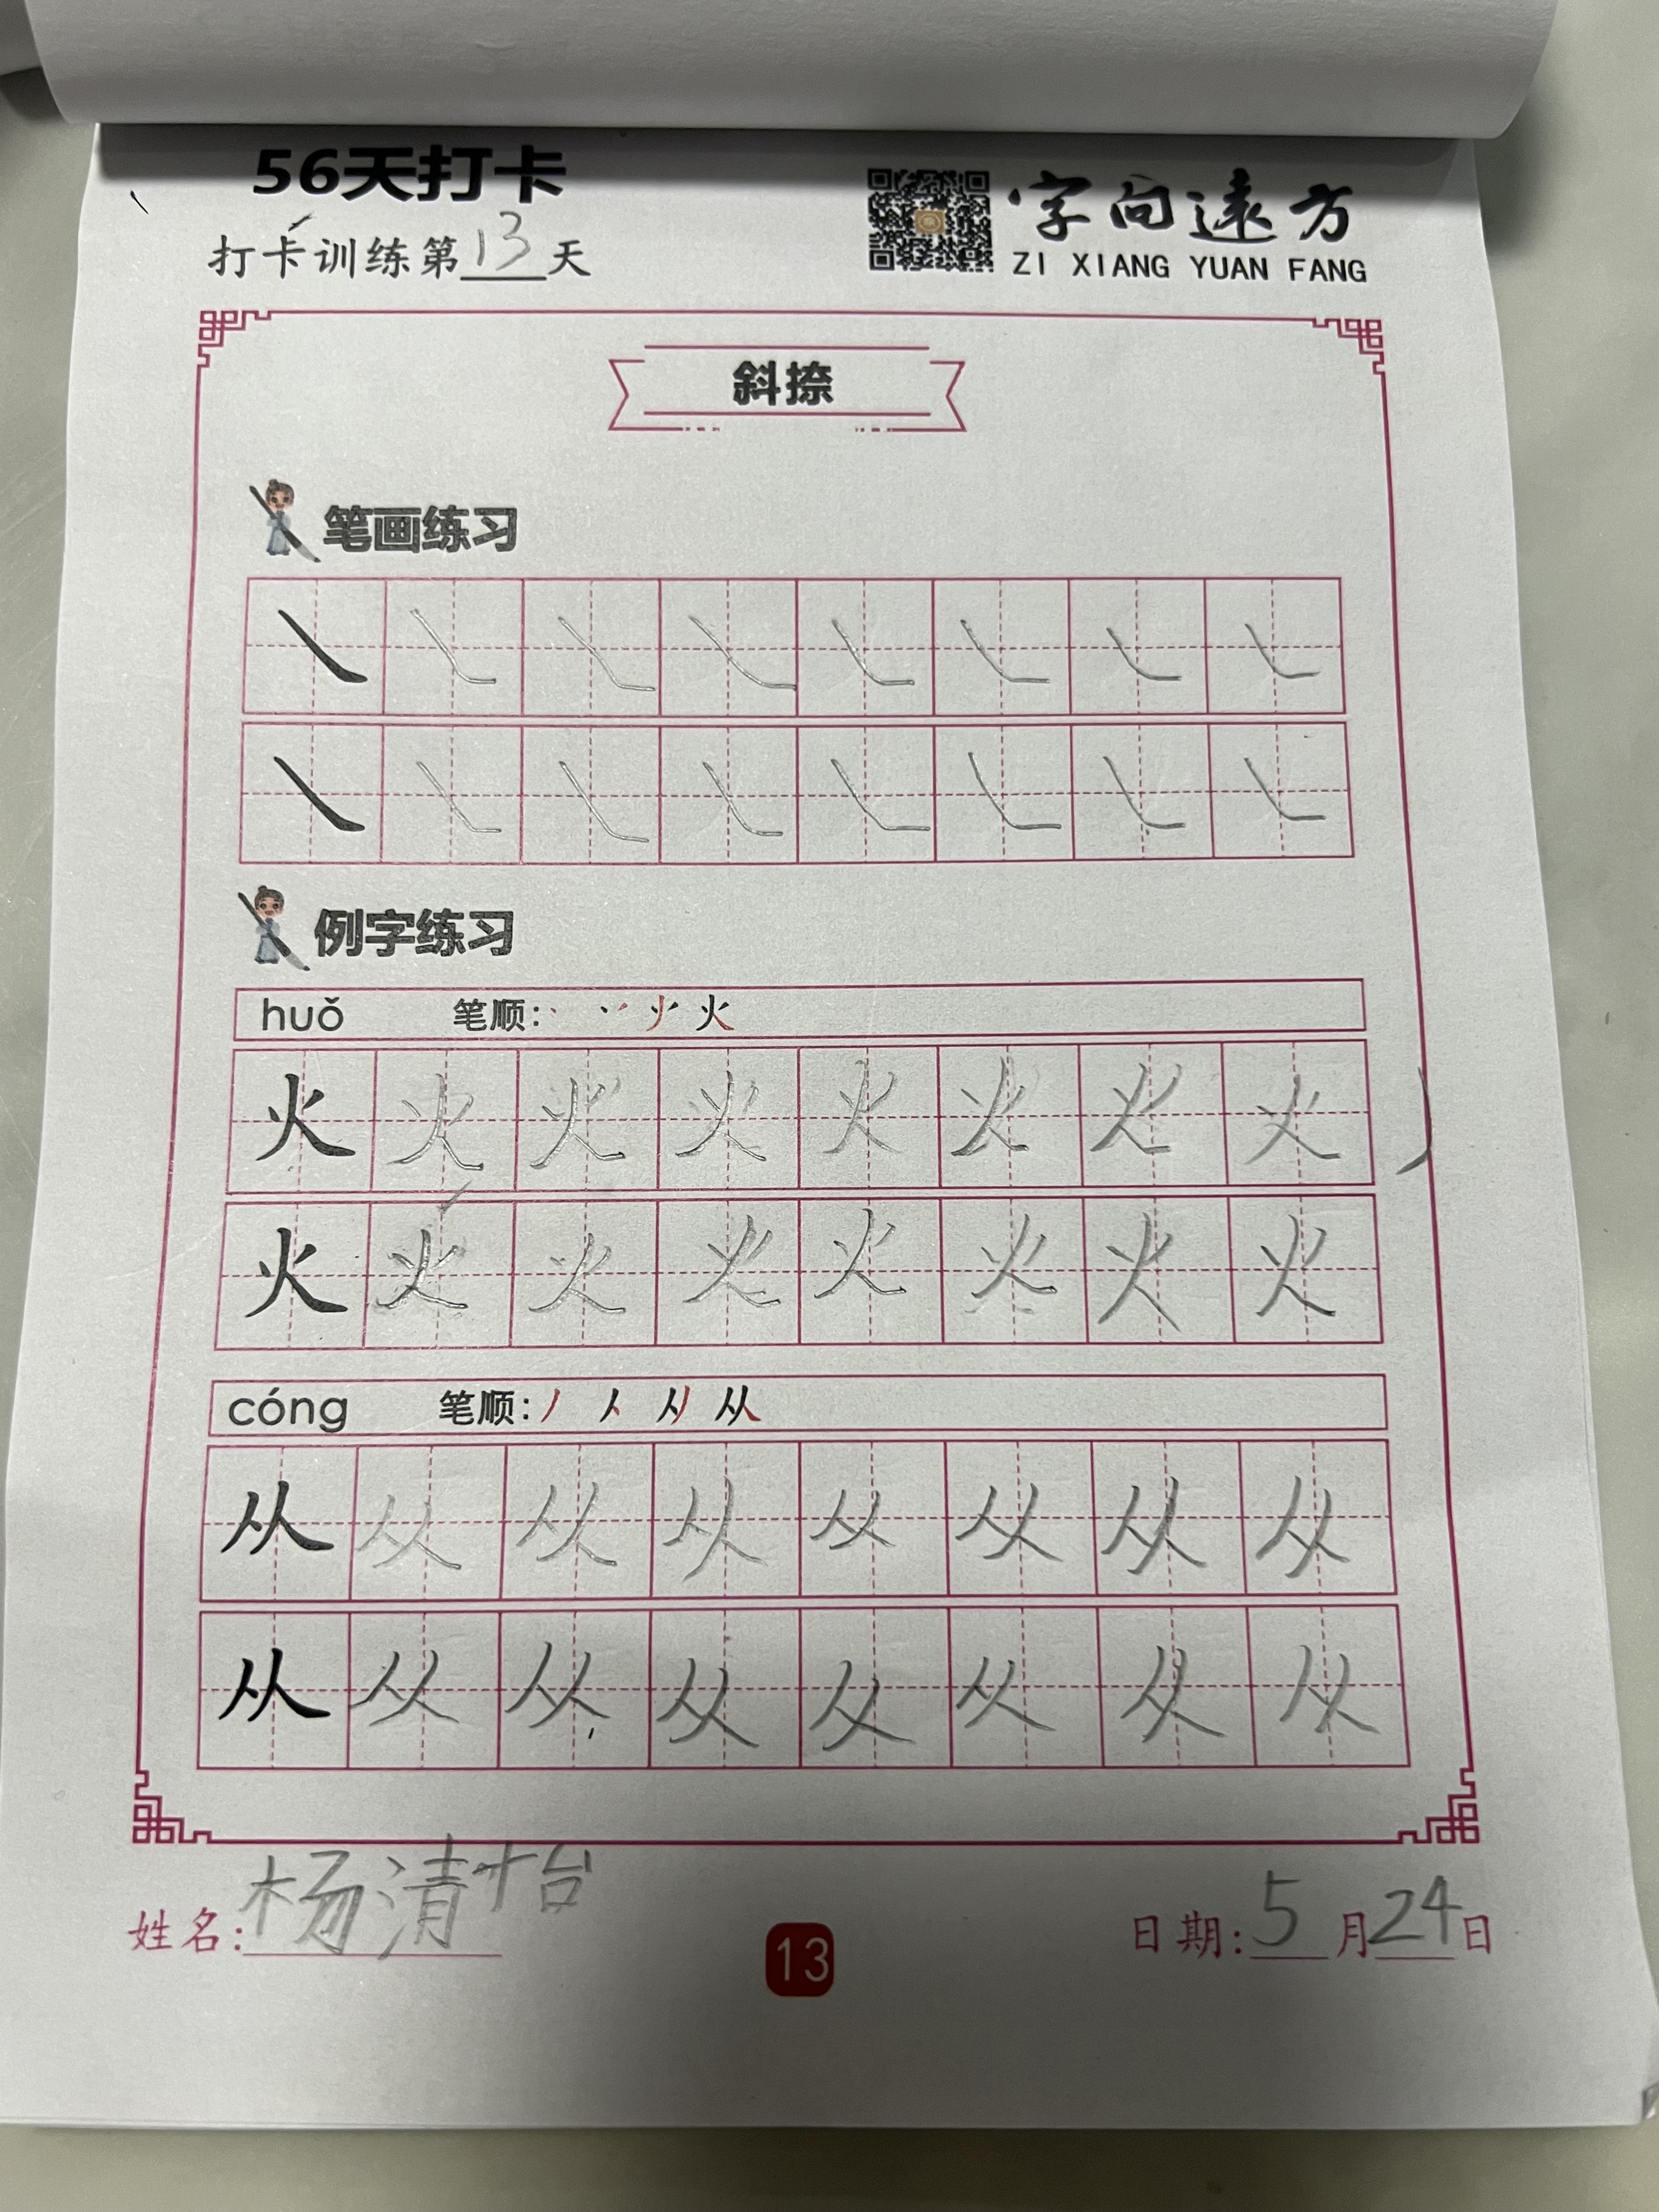 56天打卡
打卡训练第13天
字向遠方
ZI XIANG YUAN FANG
斜捺
笔画练习
例字练习
huǒ 笔顺: 火
火 火 火 火 火 火 火 火
火 火 火 火 火 火 火 火
cóng 笔顺: 从
从 从 从 从 从 从 从 从
从 从 从 从 从 从 从 从
姓名: 杨清怡
13
日期: 5月24日